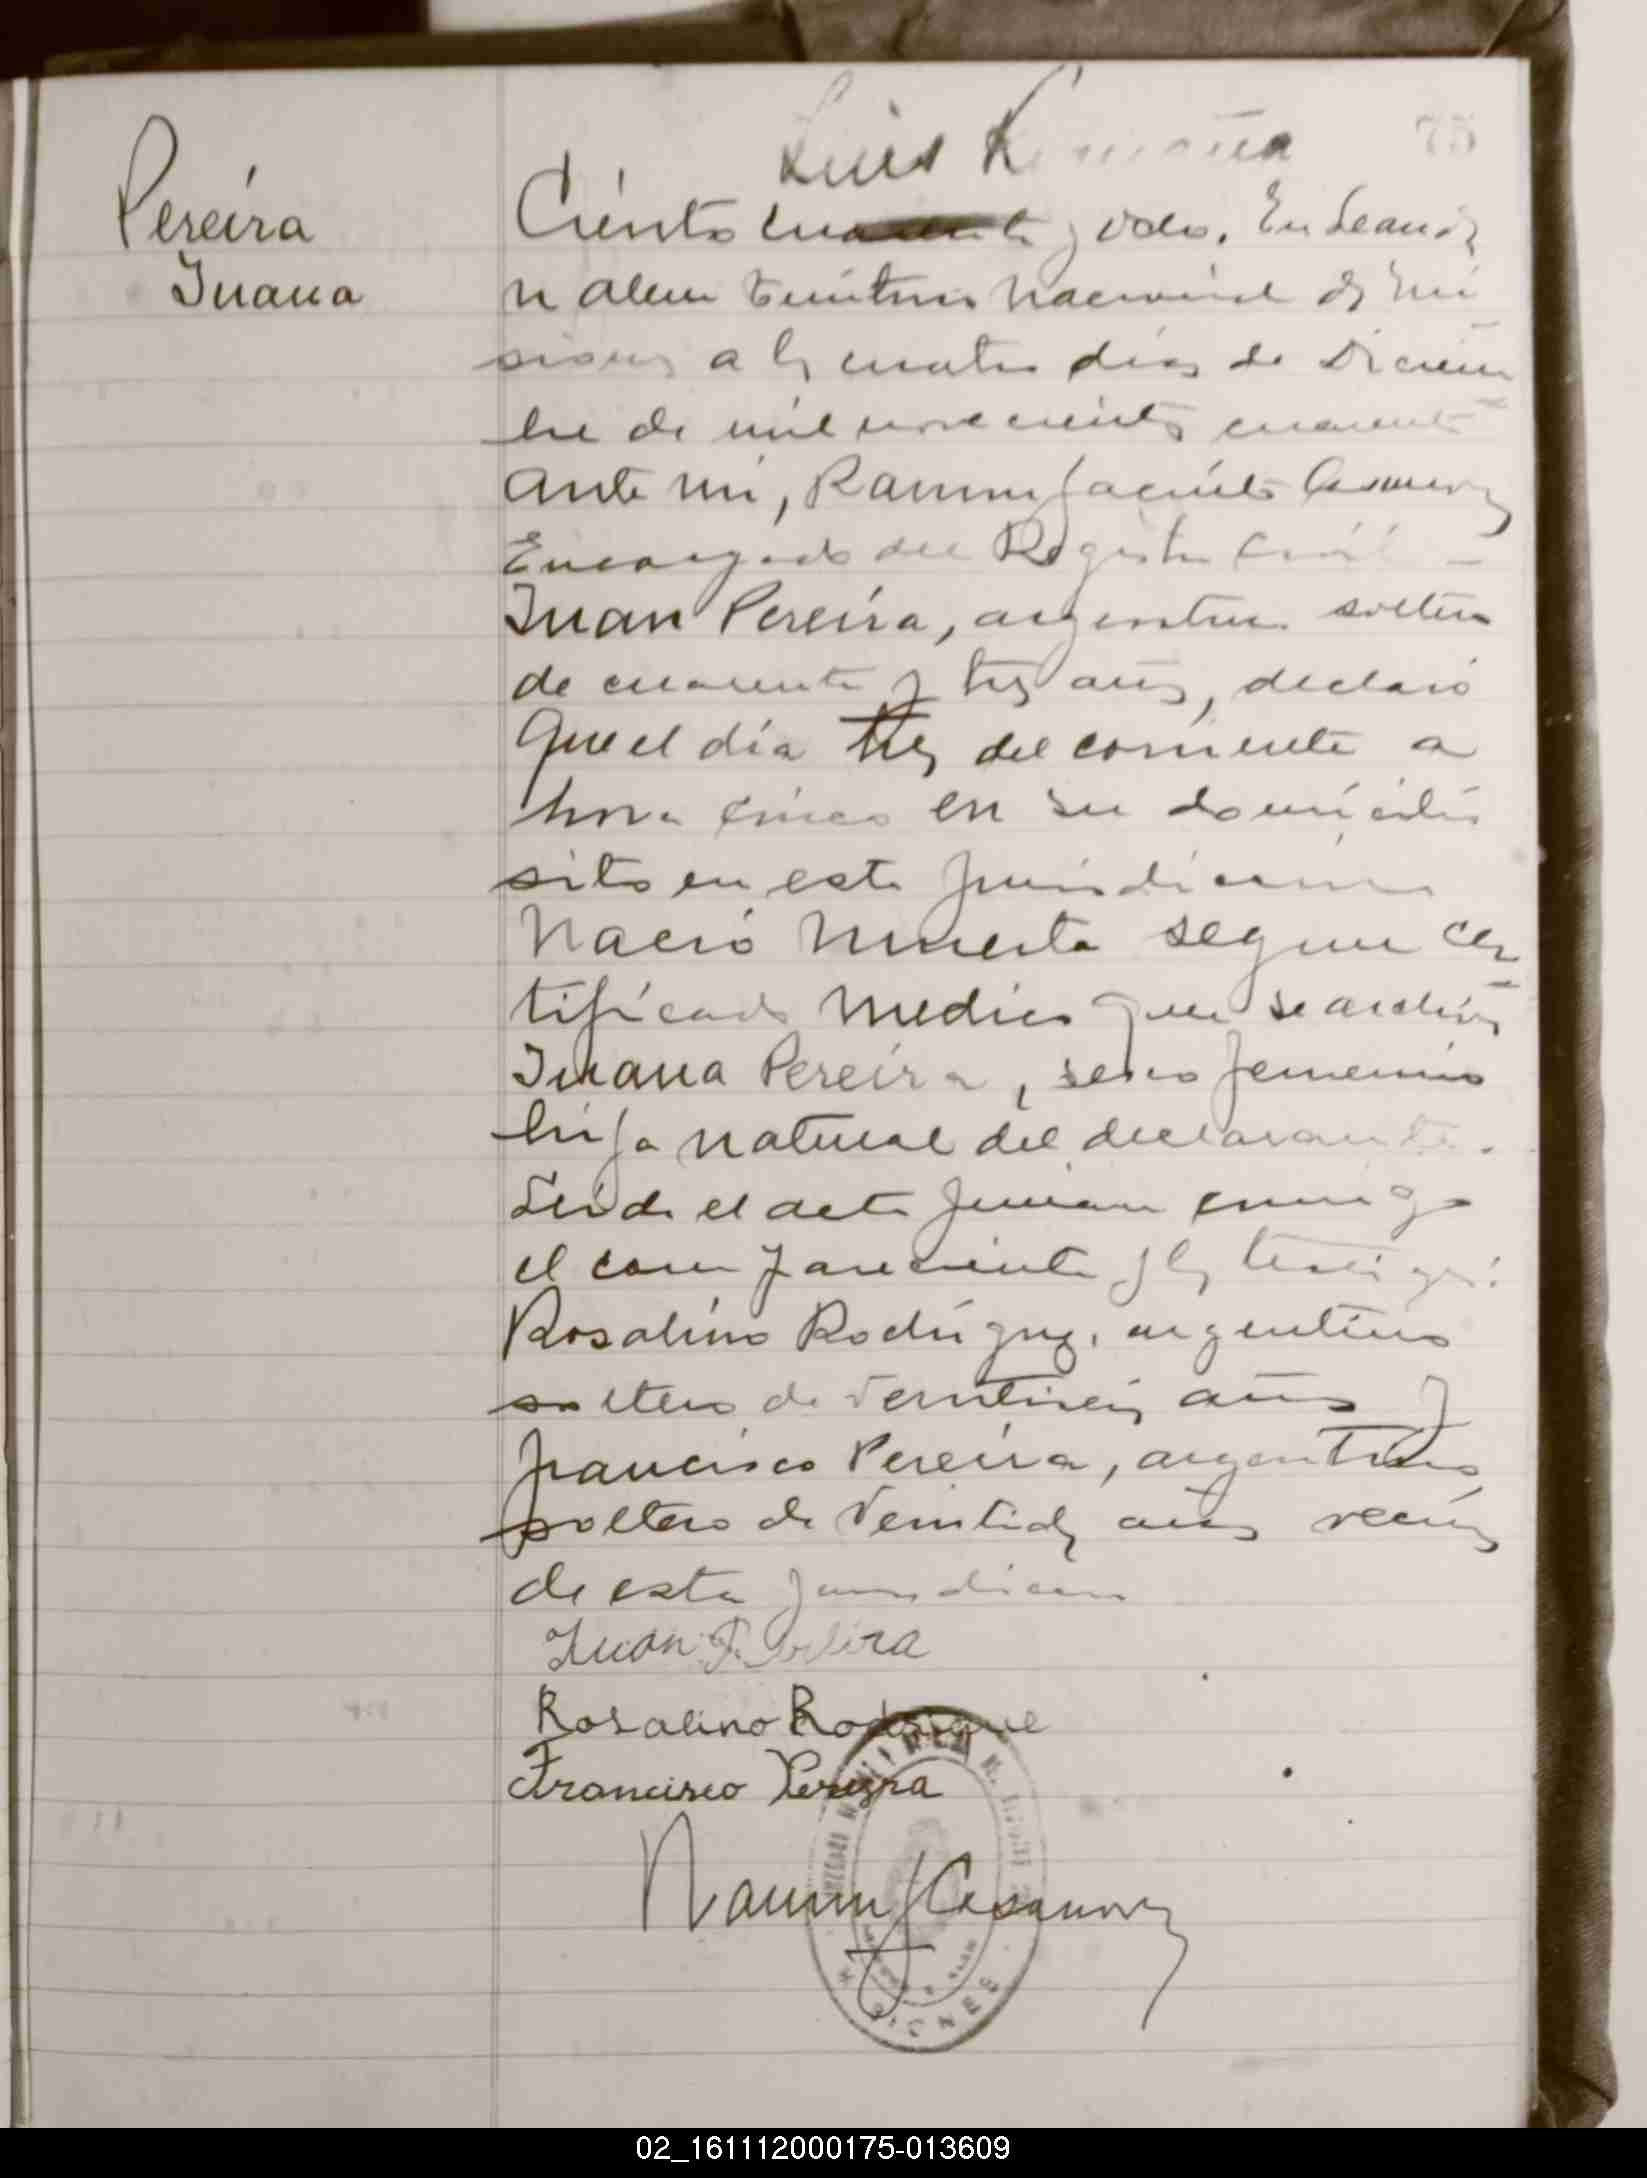 Luis
75
Pereira
Juana
Ciento cuarenta y ocho. En Leandr
n Alem Territorio Nacional de Mi
siones a los cuatro dias de Diciem
bre de mil novecientos cuarenta
ante mi, Ramon Jacinto Casanova
Encargado del Registro Civil
Juan Pereira, argentino soltero
de cuarenta y tres años, declaró
Que el día tres del corriente a
hora cinco en su domicilio
sito en esta jurisdiccion
Nació muerta segun cer
tificado medico que se archiva
Juana Pereira, sexo femenino
hija natural del declarante.
Leida el acta firman conmigo
el compareciente y los testigos:
Rosalino Rodriguez, argentino
soltero de veintiseis años y
Francisco Pereira, argentino
soltero de veintidos años vecinos
de esta jurisdiccion
Juan Pereira
Rosalino Rodrigue
Francisco Pereyra
Ramon J Casanova
02_161112000175-013609